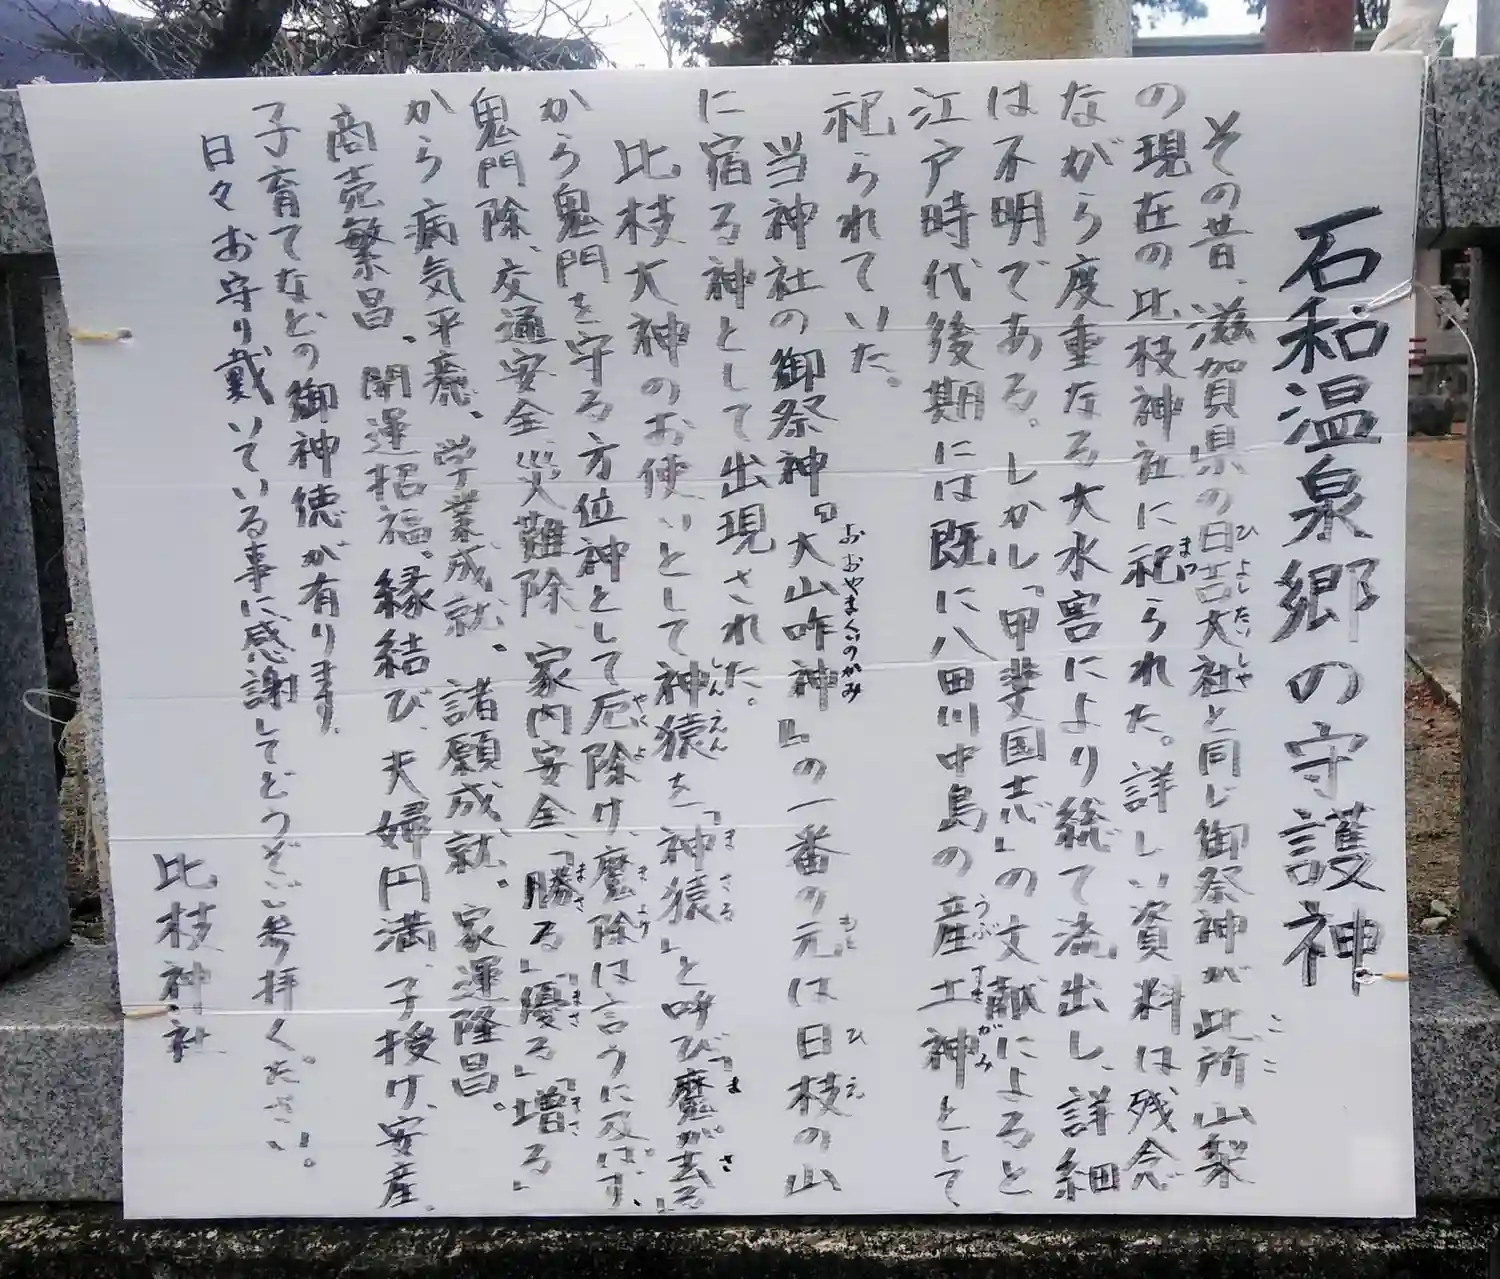 石和温泉郷の守護神
その昔、滋賀県の日吉大社と同じ御祭神が此所山梨
の現在の比枝神社に祀られた。詳しい資料は残念
ながら度重なる大水害により総て流出し、詳細
は不明である。しかし「甲斐国志」の文献によると
江戸時代後期には既に八田川中島の産土神として
祀られていた。
当神社の御祭神『大山咋神』の一番の元は日枝の山
に宿る神として出現された。
比枝大神のお使いとして神猿を「神猿」と呼び「魔が去る」
から鬼門を守る方位神として厄除け、魔除は言うに及ばず、
鬼門除、交通安全、災難除、家内安全、「勝る」「優る」「増る」
から病気平癒、学業成就、諸願成就、家運隆昌。
商売繁昌、開運招福、縁結び、夫婦円満、子授け、安産、
子育てなどの御神徳が有ります。
日々お守り戴いている事に感謝してどうぞご参拝ください。
比枝神社